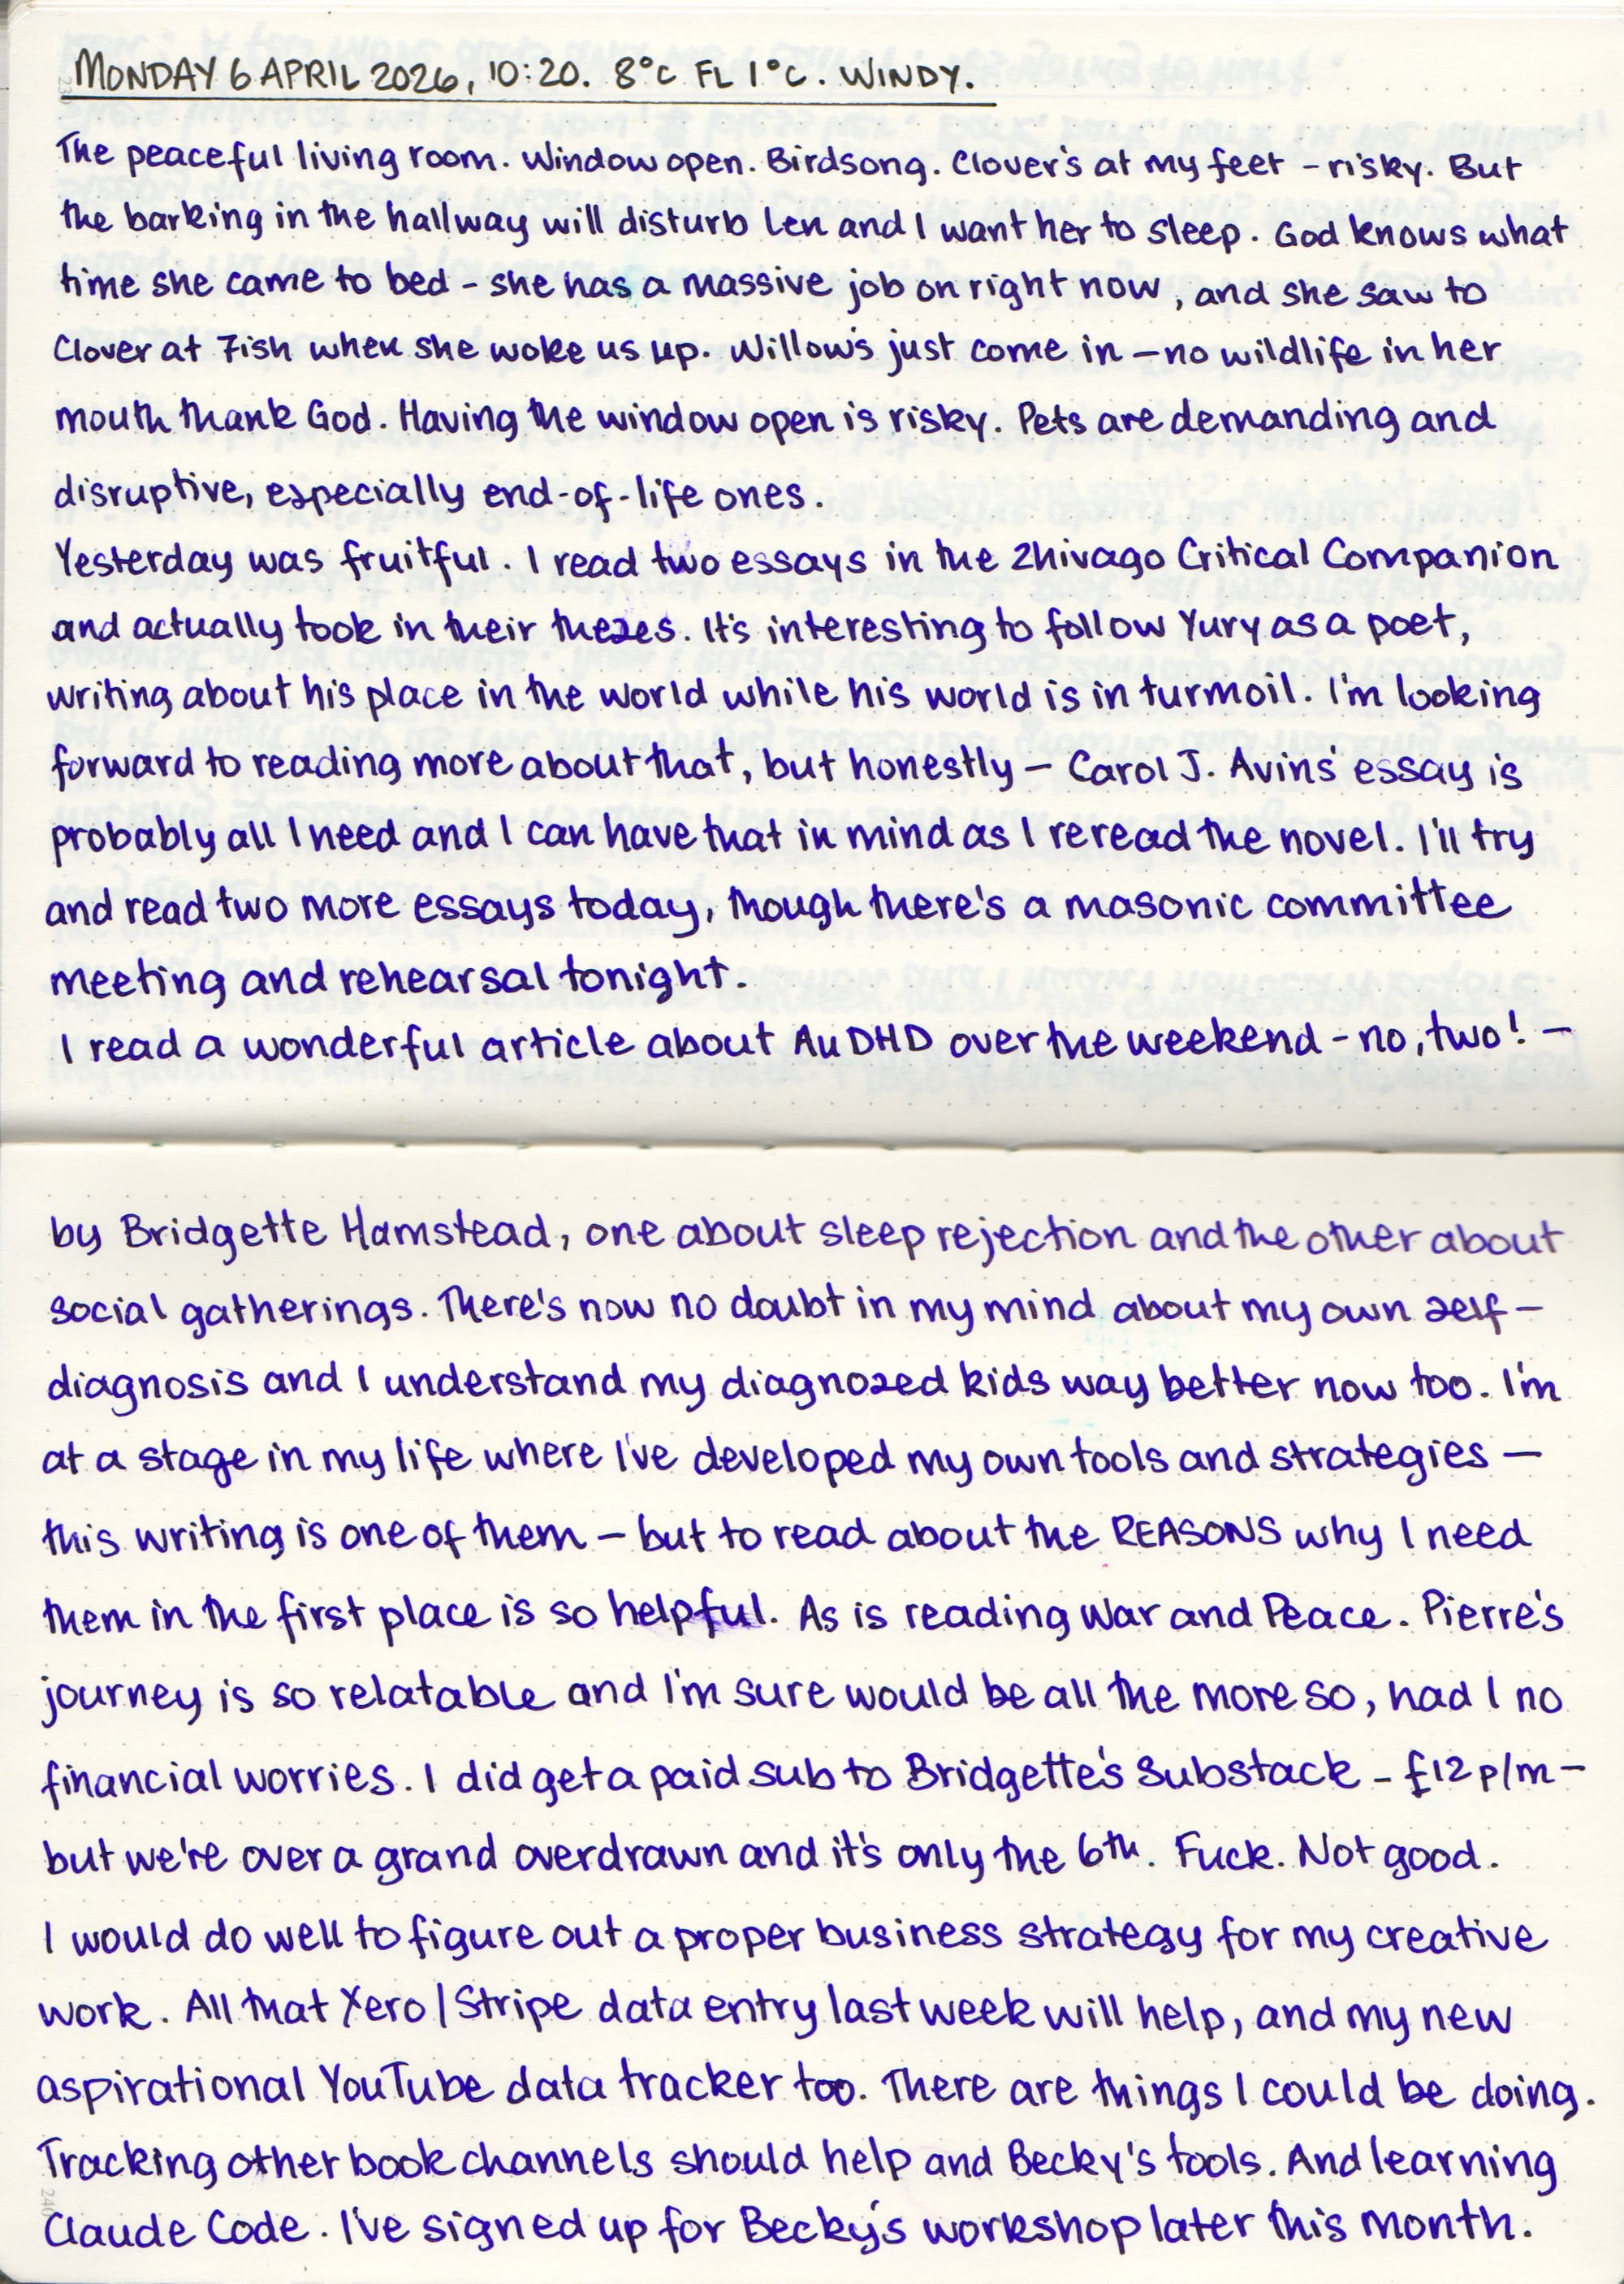 MONDAY 6 APRIL 2026, 10:20. 8°C FL 1°C. WINDY.
The peaceful living room. Window open. Birdsong. Clover's at my feet – risky. But
the barking in the hallway will disturb Len and I want her to sleep. God knows what
time she came to bed – she has a massive job on right now, and she saw to
Clover at 7ish when she woke us up. Willow's just come in – no wildlife in her
mouth thank God. Having the window open is risky. Pets are demanding and
disruptive, especially end-of-life ones.
Yesterday was fruitful. I read two essays in the Zhivago Critical Companion
and actually took in their theses. It's interesting to follow Yury as a poet,
writing about his place in the world while his world is in turmoil. I'm looking
forward to reading more about that, but honestly – Carol J. Avins' essay is
probably all I need and I can have that in mind as I reread the novel. I'll try
and read two more essays today, though there's a masonic committee
meeting and rehearsal tonight.
I read a wonderful article about AuDHD over the weekend – no, two! –
by Bridgette Hamstead, one about sleep rejection and the other about
social gatherings. There's now no doubt in my mind about my own self-
diagnosis and I understand my diagnosed kids way better now too. I'm
at a stage in my life where I've developed my own tools and strategies –
this writing is one of them – but to read about the REASONS why I need
them in the first place is so helpful. As is reading War and Peace. Pierre's
journey is so relatable and I'm sure would be all the more so, had I no
financial worries. I did get a paid sub to Bridgette's Substack – £12 p/m –
but we're over a grand overdrawn and it's only the 6th. Fuck. Not good.
I would do well to figure out a proper business strategy for my creative
work. All that Xero/Stripe data entry last week will help, and my new
aspirational YouTube data tracker too. There are things I could be doing.
Tracking other book channels should help and Becky's tools. And learning
Claude Code. I've signed up for Becky's workshop later this month.
240